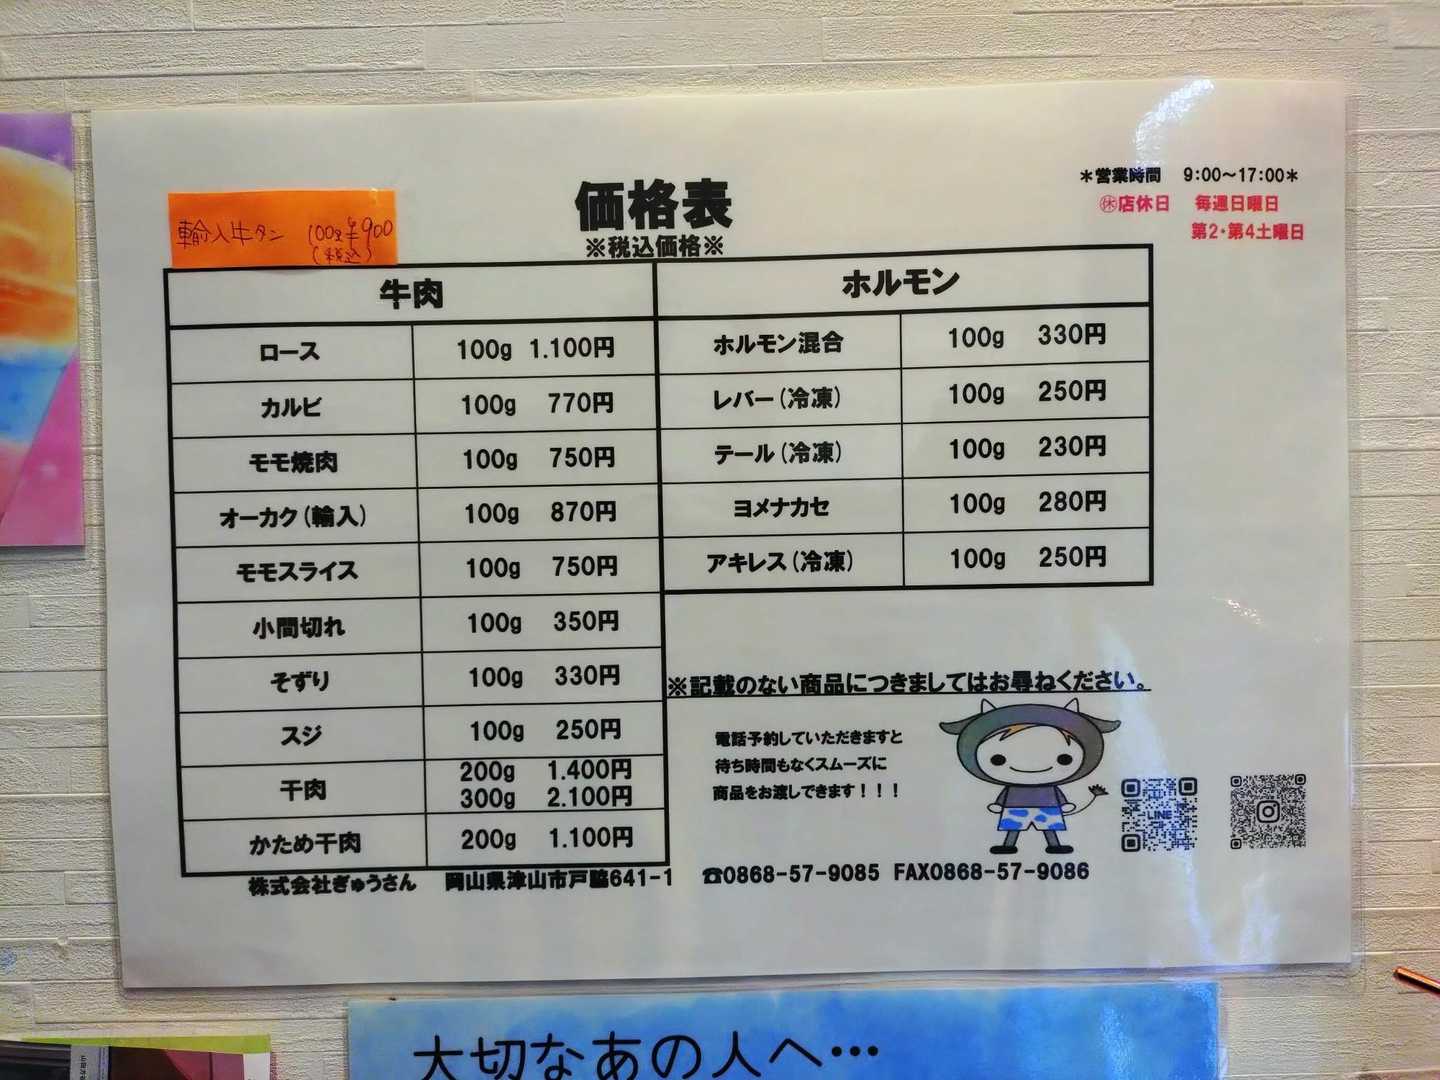 価格表
※税込価格※
＊営業時間　9:00～17:00＊
㊡店休日　毎週日曜日
第2・第4土曜日
輸入牛タン　100g ¥900
(税込)
牛肉
ロース　100g　1.100円
カルビ　100g　770円
モモ焼肉　100g　750円
オーカク(輸入)　100g　870円
モモスライス　100g　750円
小間切れ　100g　350円
そずり　100g　330円
スジ　100g　250円
干肉　200g　1.400円
300g　2.100円
かため干肉　200g　1.100円
ホルモン
ホルモン混合　100g　330円
レバー(冷凍)　100g　250円
テール(冷凍)　100g　230円
ヨメナカセ　100g　280円
アキレス(冷凍)　100g　250円
※記載のない商品につきましてはお尋ねください。
電話予約していただきますと
待ち時間もなくスムーズに
商品をお渡しできます！！！
LINE
株式会社ぎゅうさん　岡山県津山市戸脇641-1　☎0868-57-9085 FAX0868-57-9086
大切なあの人へ…